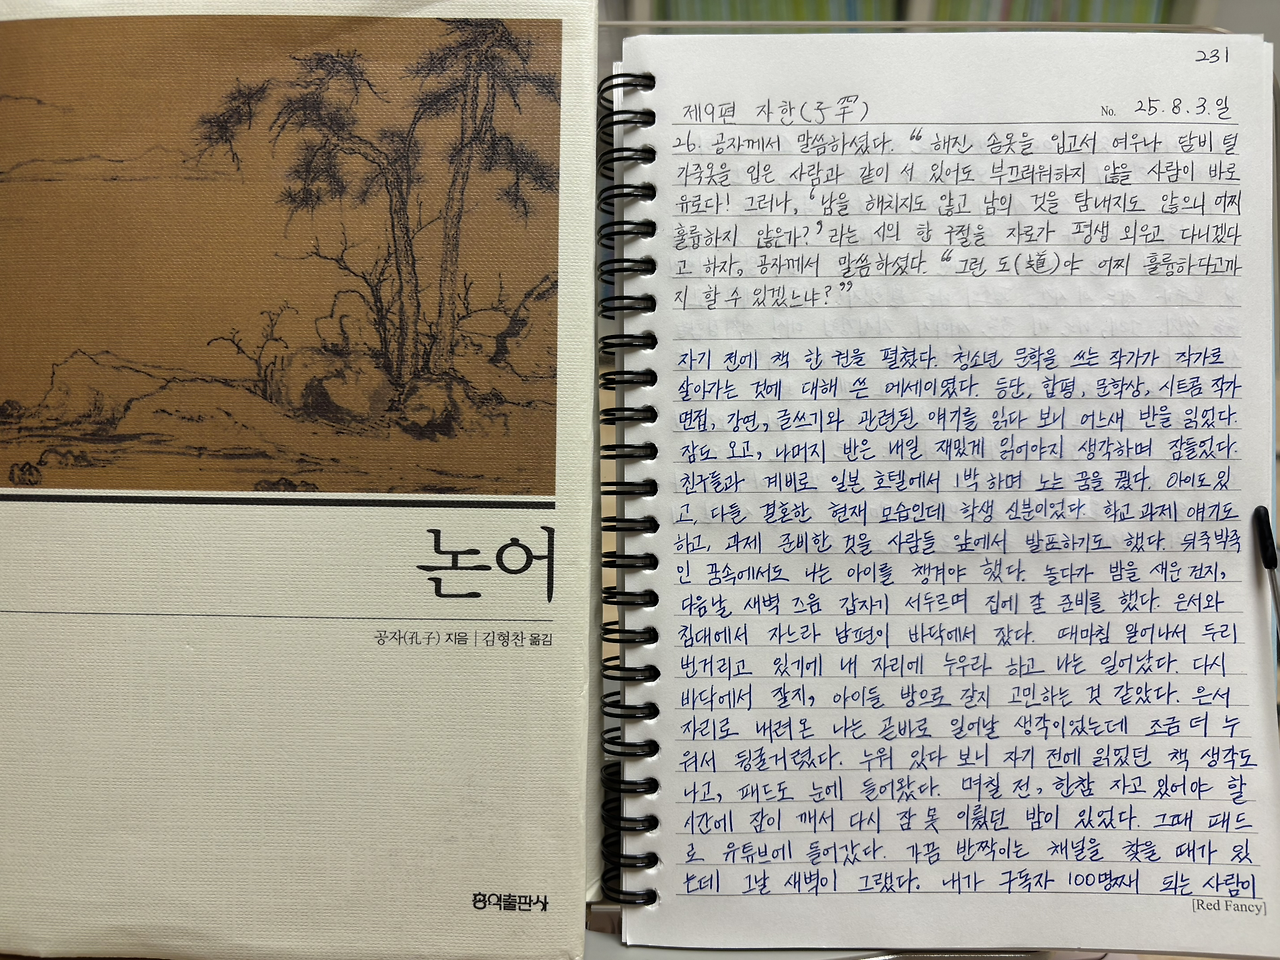 논어
공자(孔子) 지음 | 김형찬 옮김
홍익출판사
231
제9편 자한(子罕)
No. 25. 8. 3. 일
26. 공자께서 말씀하셨다. “해진 솜옷을 입고서 여우나 담비 털
가죽옷을 입은 사람과 같이 서 있어도 부끄러워하지 않을 사람이 바로
유로다! 그러나, ‘남을 해치지도 않고 남의 것을 탐내지도 않으니 어찌
훌륭하지 않은가?’라는 시의 한 구절을 자로가 평생 외우고 다니겠다
고 하자, 공자께서 말씀하셨다. “그런 도(道)야 어찌 훌륭하다고까
지 할 수 있겠느냐?”
자기 전에 책 한 권을 펼쳤다. 청소년 문학을 쓰는 작가가 작가로
살아가는 것에 대해 쓴 에세이였다. 등단, 합평, 문학상, 시트콤 작가
면접, 강연, 글쓰기와 관련된 얘기를 읽다 보니 어느새 반을 읽었다.
잠도 오고, 나머지 반은 내일 재밌게 읽어야지 생각하며 잠들었다.
친구들과 계비로 일본 호텔에서 1박 하며 노는 꿈을 꿨다. 아이도 있
고, 다들 결혼한 현재 모습인데 학생 신분이었다. 학교 과제 얘기도
하고, 과제 준비한 것을 사람들 앞에서 발표하기도 했다. 뒤죽박죽
인 꿈속에서도 나는 아이를 챙겨야 했다. 놀다가 밤을 새운 건지,
다음날 새벽 즈음 갑자기 서두르며 집에 갈 준비를 했다. 은서와
침대에서 자느라 남편이 바닥에서 잤다. 때마침 일어나서 두리
번거리고 있기에 내 자리에 누우라 하고 나는 일어났다. 다시
바닥에서 잘지, 아이들 방으로 갈지 고민하는 것 같았다. 은서
자리로 내려온 나는 곧바로 일어날 생각이었는데 조금 더 누
워서 뒹굴거렸다. 누워 있다 보니 자기 전에 읽었던 책 생각도
나고, 패드도 눈에 들어왔다. 며칠 전, 한참 자고 있어야 할
시간에 잠이 깨서 다시 잠 못 이뤘던 밤이 있었다. 그때 패드
로 유튜브에 들어갔다. 가끔 반짝이는 채널을 찾을 때가 있
는데 그날 새벽이 그랬다. 내가 구독자 100명째 되는 사람이
[Red Fancy]